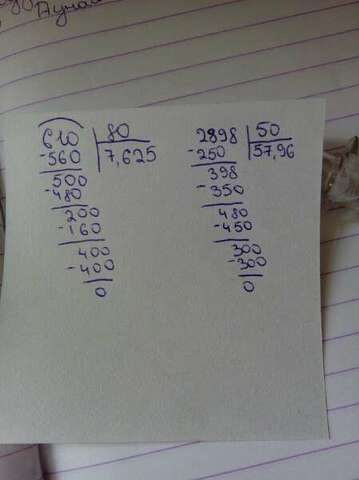 Дунай
610 | 80
-560 | 7,625
500
-480
200
-160
400
-400
0
2898 | 50
-250 | 57,96
398
-350
480
-450
300
-300
0